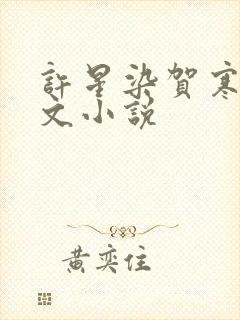 許星染賀寒
文小說
黃奕住